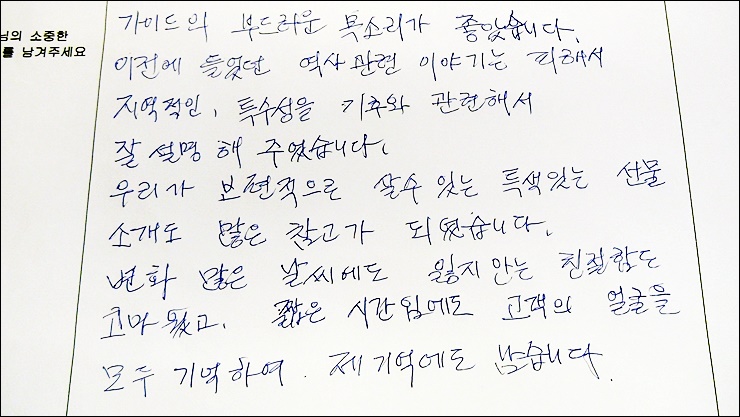 님의 소중한
를 남겨주세요
가이드의 부드러운 목소리가 좋았습니다.
이전에 들었던 역사관련 이야기는 피해서
지역적인, 특수성을 기후와 관련해서
잘 설명해 주었습니다.
우리가 보편적으로 살수있는 특색있는 선물
소개도 많은 참고가 되었습니다.
변화 많은 날씨에도 잃지 안는 친절함도
고마웠고, 짧은 시간임에도 고객의 얼굴을
모두 기억하여. 제 기억에도 남습니다.